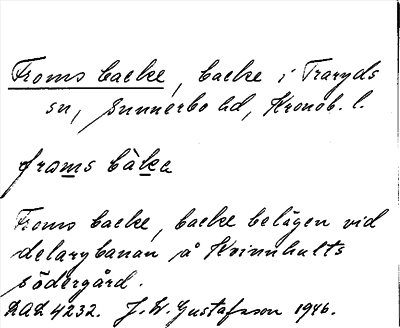 Froms backe, backe i Traryds
sn, Sunnerbo hd, Kronob. l.
froms bàka
Froms backe, backe belägen vid
delarybanan å Kvinnhults
södergård.
DAL 4232. J. W. Gustafsson 1946.